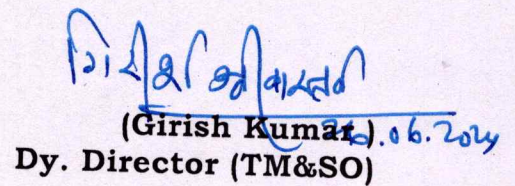 गिरीश श्रीवास्तव
(Girish Kumar) 20.06.2024
Dy. Director (TM&SO)